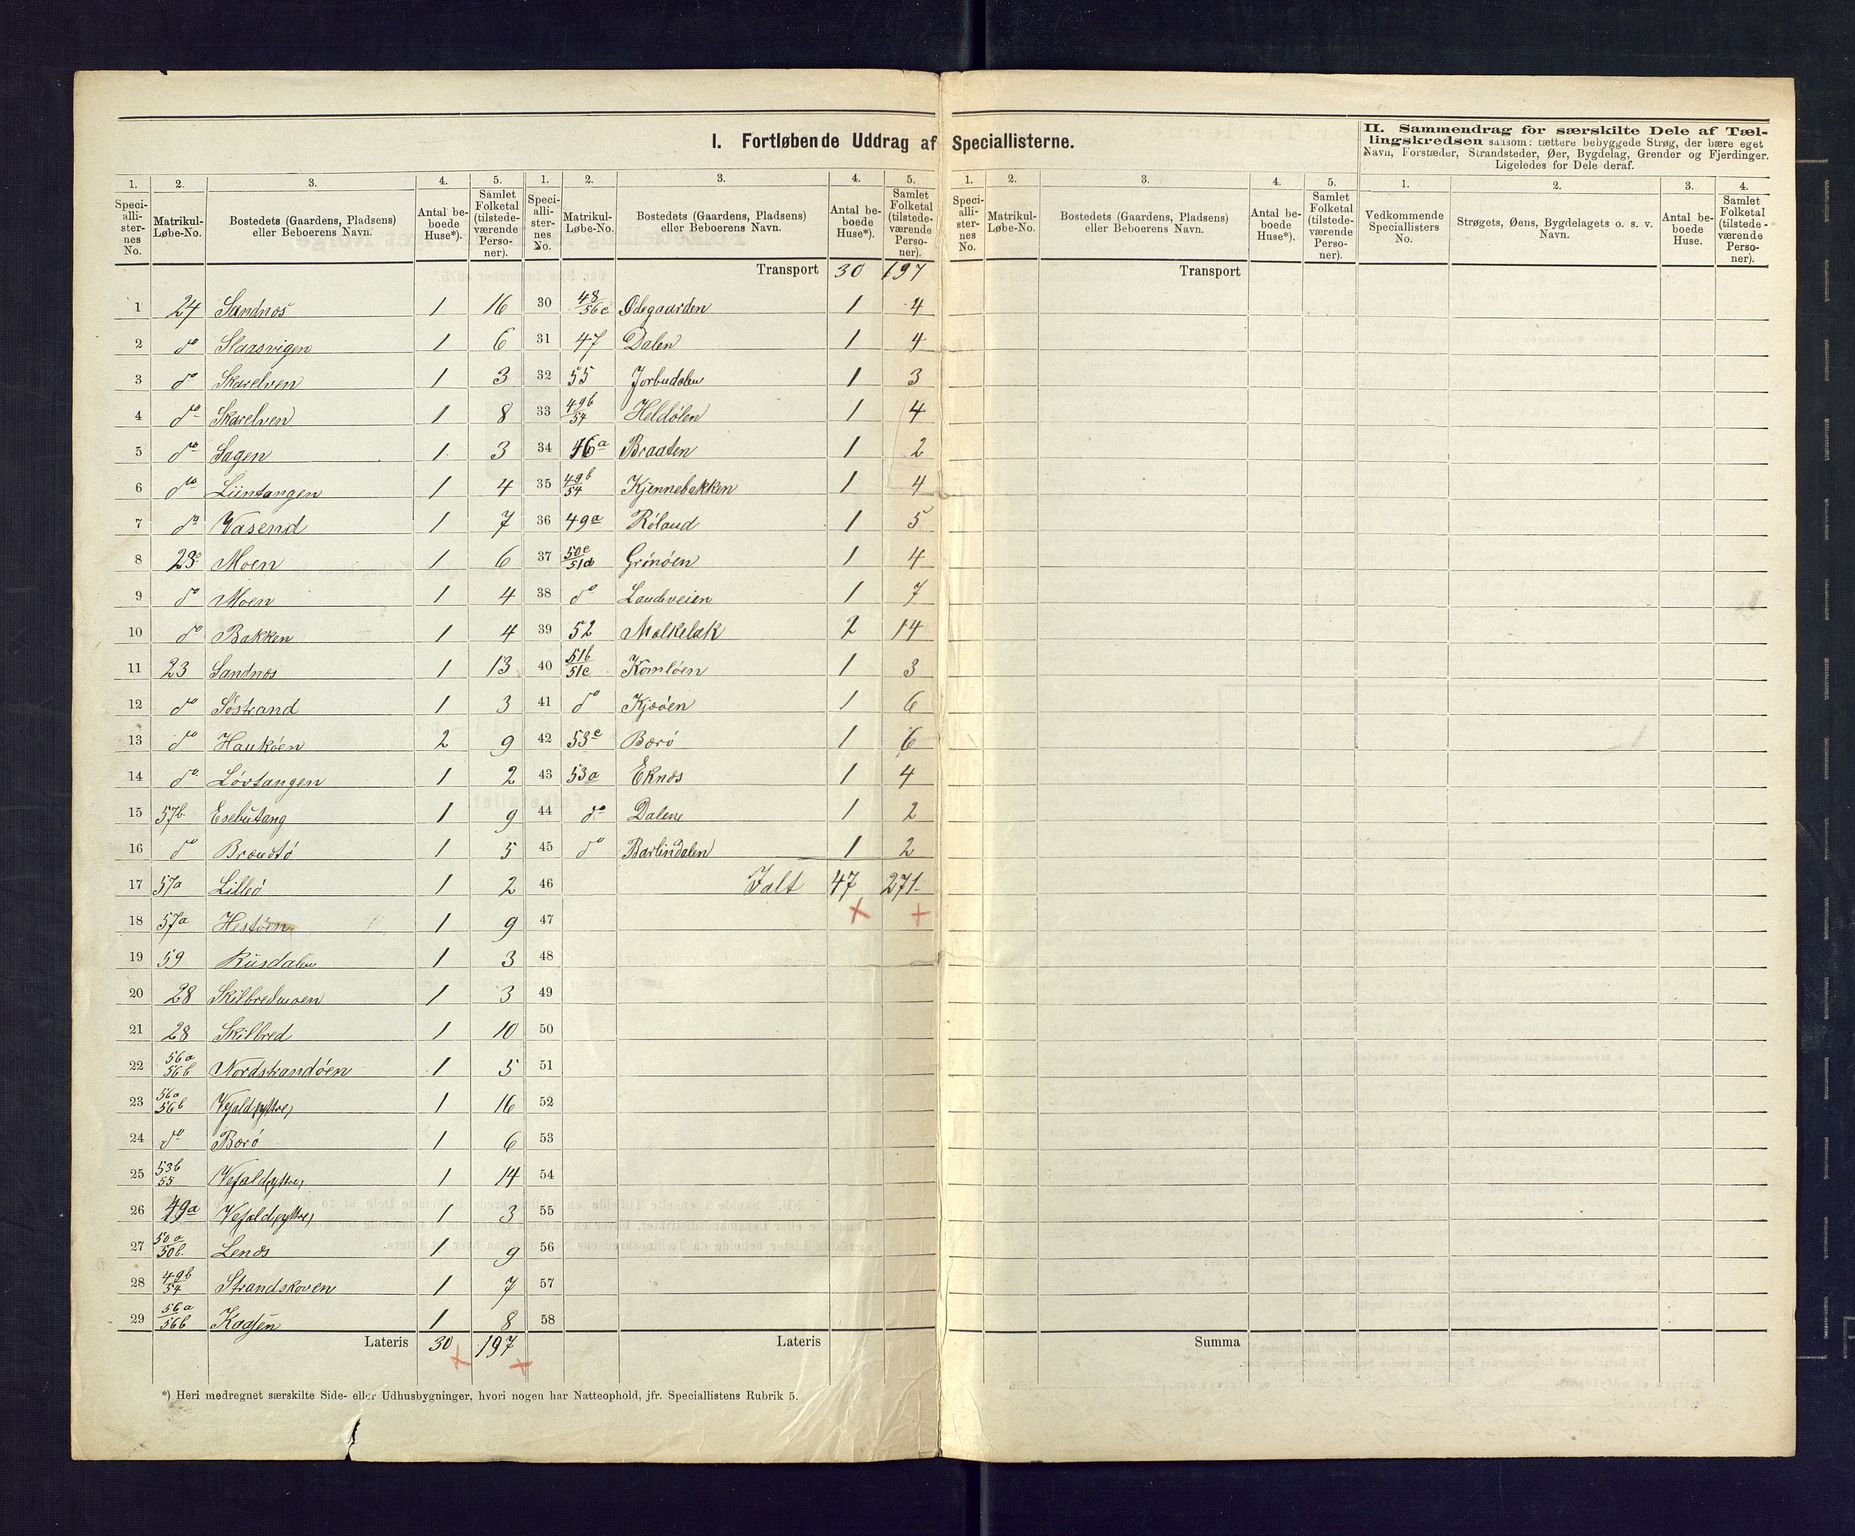 I. Fortløbende Uddrag af Speciallisterne.
II. Sammendrag for særskilte Dele af Tæl-
lingskredsen saasom: tættere bebyggede Strøg, der bære eget
Navn, Forstæder, Strandsteder, Øer, Bygdelag, Grender og Fjerdinger.
Ligeledes for Dele deraf.
1. 2. 3. 4. 5. 1. 2. 3. 4. 5. 1. 2. 3. 4. 5. 1. 2. 3. 4.
Speciallisternes No. Matrikul-Løbe-No. Bostedets (Gaardens, Pladsens) eller Beboerens Navn. Antal beboede Huse*). Samlet Folketal (tilstedeværende Personer).
Speciallisternes No. Matrikul-Løbe-No. Bostedets (Gaardens, Pladsens) eller Beboerens Navn. Antal beboede Huse*). Samlet Folketal (tilstedeværende Personer).
Speciallisternes No. Matrikul-Løbe-No. Bostedets (Gaardens, Pladsens) eller Beboerens Navn. Antal beboede Huse*). Samlet Folketal (tilstedeværende Personer).
Vedkommende Speciallisters No. Strøgets, Øens, Bygdelagets o. s. v. Navn. Antal beboede Huse. Samlet Folketal (tilstedeværende Personer).
Transport 30 197 Transport
1 24 Sandnæs 1 16 30 48/56c Ødegaarden 1 4
2 do Slaasvigen 1 6 31 47 Dalen 1 4
3 do Skarelven 1 3 32 55 Jorbudalen 1 3
4 do Skarelven 1 8 33 49b/54 Heldølen 1 4
5 do Sagen 1 3 34 46a Braaten 1 2
6 do Liintangen 1 4 35 49b/54 Kjennebakken 1 4
7 do Vasend 1 7 36 49a Røland 1 5
8 23c Moen 1 6 37 50c/51d Grønøen 1 4
9 do Moen 1 4 38 do Landeveien 1 7
10 do Bakken 1 4 39 52 Molkelak 2 14
11 23 Sandnæs 1 13 40 51b/51c Komløen 1 3
12 do Søstrand 1 3 41 do Kjøøen 1 6
13 do Haukøen 2 9 42 53c Berø 1 6
14 do Løvtangen 1 2 43 53a Eknæs 1 4
15 57b Esebutang 1 9 44 do Dalene 1 2
16 do Brændtø 1 5 45 do Barlindalen 1 2
17 57a Lilleø 1 2 46 Ialt 47 271
18 57a Hestøen 1 9 47
19 59 Riisdalen 1 3 48
20 28 Skilbredmoen 1 3 49
21 28 Skilbred 1 10 50
22 56a/56b Nordstrandøen 1 5 51
23 56a/56b Vefald, yttre, 1 16 52
24 do Berø 1 6 53
25 53b/55 Vefald, yttre, 1 14 54
26 49a Vefald, yttre, 1 3 55
27 50a/50b Lenæs 1 9 56
28 49b/54 Strandskoven 1 7 57
29 56a/56b Kaasen 1 8 58
Lateris 30 197 Lateris Summa
*) Heri medregnet særskilte Side- eller Udhusbygninger, hvori nogen har Natteophold, jfr. Speciallistens Rubrik 5.